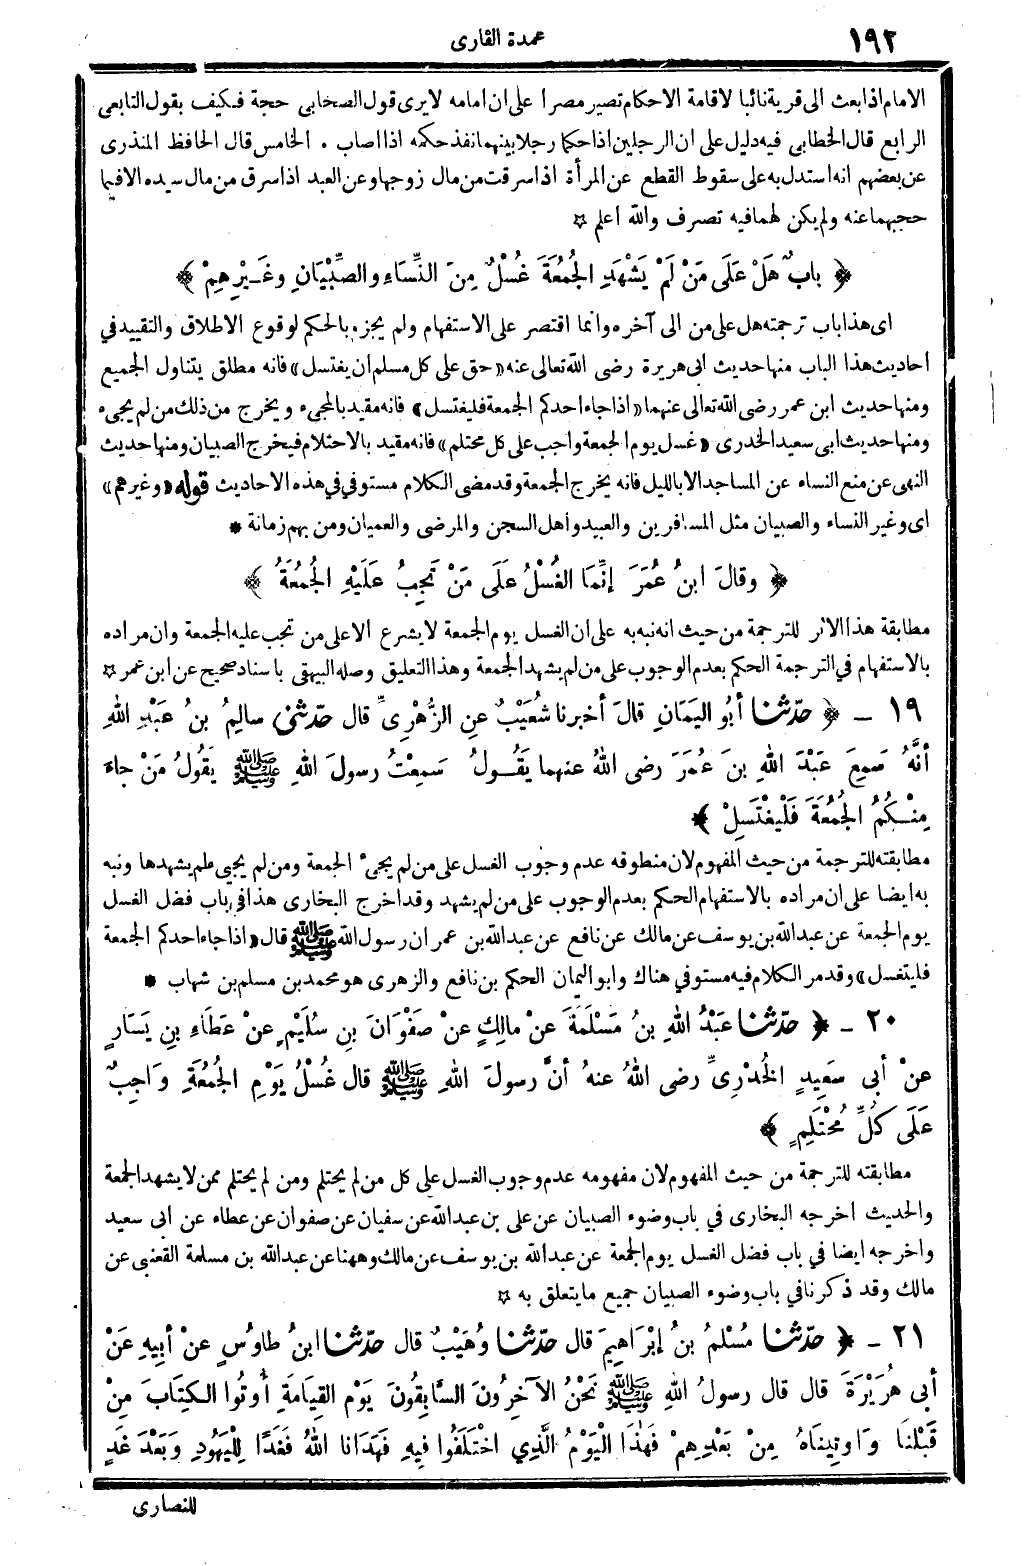 ١٩٢
عمدة القارى
الامام اذا بعث الى قرية نائبا لاقامة الاحكام تصير مصرا على ان امامه لا يرى قول الصحابى حجة فكيف بقول التابعى
الرابع قال الخطابى فيه دليل على ان الرجلين اذا حكما رجلا بينهما نفذ حكمه اذا اصاب . الخامس قال الحافظ المنذرى
عن بعضهم انه استدل به على سقوط القطع عن المرأة اذا سرقت من مال زوجها وعن العبد اذا سرق من مال سيده الا فيما
حجبهما عنه ولم يكن لهما فيه تصرف والله اعلم ✩
﴿ بابٌ هَلْ عَلَى مَنْ لَمْ يَشْهَدِ الجُمُعَةَ غُسْلٌ مِنَ النِّسَاءِ والصِّبْيَانِ وغَيْرِهِمْ ﴾
اى هذا باب ترجمته هل على من الى آخره وانما اقتصر على الاستفهام ولم يجزم بالحكم لوقوع الاطلاق والتقييد في
احاديث هذا الباب منها حديث ابى هريرة رضى الله تعالى عنه «حق على كل مسلم ان يغتسل» فانه مطلق يتناول الجميع
ومنها حديث ابن عمر رضى الله تعالى عنهما «اذا جاء احدكم الجمعة فليغتسل» فانه مقيد بالمجىء ويخرج من ذلك من لم يجىء
ومنها حديث ابى سعيد الخدرى «غسل يوم الجمعة واجب على كل محتلم» فانه مقيد بالاحتلام فيخرج الصبيان ومنها حديث
النهى عن منع النساء عن المساجد الا بالليل فانه يخرج الجمعة وقد مضى الكلام مستوفي في هذه الاحاديث قوله «وغيرهم»
اى وغير النساء والصبيان مثل المسافرين والعبيد واهل السجن والمرضى والعميان ومن بهم زمانة *
﴿ وقالَ ابنُ عُمَرَ إنَّمَا الغُسْلُ عَلَى مَنْ تَجِبُ عَلَيْهِ الجُمُعَةُ ﴾
مطابقة هذا الاثر للترجمة من حيث انه نبه به على ان الغسل يوم الجمعة لا يشرع الا على من تجب عليه الجمعة وان مراده
بالاستفهام في الترجمة الحكم بعدم الوجوب على من لم يشهد الجمعة وهذا التعليق وصله البيهقى باسناد صحيح عن ابن عمر ✩
١٩ ـ ﴿ حدّثنا أبُو اليَمَانِ قالَ أخبرنا شُعَيْبٌ عنِ الزُّهْرِىِّ قال حدّثنى سالِمُ بنُ عَبْدِ اللهِ
أنَّهُ سَمِعَ عَبْدَ اللهِ بنَ عُمَرَ رضى اللهُ عنهما يَقُولُ سَمِعْتُ رسولَ اللهِ ﷺ يقُولُ مَنْ جاءَ
مِنْكُمُ الجُمُعَةَ فَلْيَغْتَسِلْ ﴾
مطابقته للترجمة من حيث المفهوم لان منطوقه عدم وجوب الغسل على من لم يجىء الجمعة ومن لم يجىء لم يشهدها ونبه
به ايضا على ان مراده بالاستفهام الحكم بعدم الوجوب على من لم يشهد وقد اخرج البخارى هذا في باب فضل الغسل
يوم الجمعة عن عبد الله بن يوسف عن مالك عن نافع عن عبد الله بن عمر ان رسول الله ﷺ قال «اذا جاء احدكم الجمعة
فليتغسل» وقد مر الكلام فيه مستوفي هناك وابو اليمان الحكم بن نافع والزهرى هو محمد بن مسلم بن شهاب *
٢٠ ـ ﴿ حدّثنا عَبْدُ اللهِ بنُ مَسْلَمَةَ عنْ مالِكٍ عنْ صَفْوَانَ بنِ سُلَيْمٍ عنْ عَطَاءِ بنِ يَسَارٍ
عنْ أبى سَعِيدٍ الخُدْرِىِّ رضى اللهُ عنهُ أنَّ رسولَ اللهِ ﷺ قال غُسْلُ يَوْمِ الجُمُعَةِ وَاجِبٌ
عَلَى كُلِّ مُحْتَلِمٍ ﴾
مطابقته للترجمة من حيث المفهوم لان مفهومه عدم وجوب الغسل على كل من لم يحتلم ومن لم يحتلم ممن لا يشهد الجمعة
والحديث اخرجه البخارى في باب وضوء الصبيان عن على بن عبد الله عن سفيان عن صفوان عن عطاء عن ابى سعيد
واخرجه ايضا في باب فضل الغسل يوم الجمعة عن عبد الله بن يوسف عن مالك وههنا عن عبد الله بن مسلمة القعنبى عن
مالك وقد ذكرنا في باب وضوء الصبيان جميع ما يتعلق به ✩
٢١ ـ ﴿ حدّثنا مُسْلِمُ بنُ إبْرَاهِيمَ قال حدّثنا وُهَيْبٌ قال حدّثنا ابنُ طاوُسٍ عنْ أبِيهِ عنْ
أبى هُرَيْرَةَ قال قال رسولُ اللهِ ﷺ نَحْنُ الآخِرُونَ السَّابِقُونَ يَوْمَ القِيَامَةِ أُوتُوا الكِتَابَ مِنْ
قَبْلِنَا وَاوتِينَاهُ مِنْ بَعْدِهِمْ فَهَذَا اليَوْمُ الَّذِي اخْتَلَفُوا فِيهِ فَهَدَانا اللهُ فَغَدًا لِلْيَهُودِ وَبَعْدَ غَدٍ
للنصارى